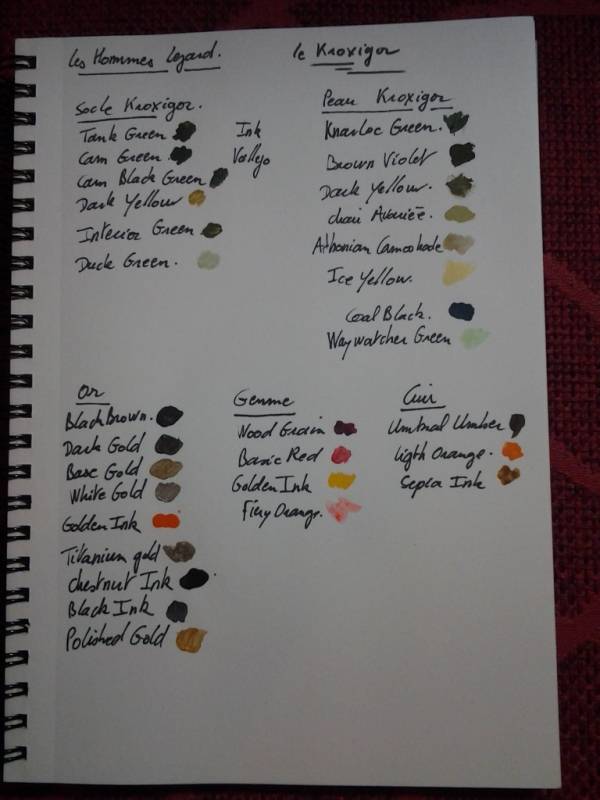 Les Hommes Lezard.
le Kroxigor
Socle Kroxigor.
Tank Green
Cam Green
Cam Black Green
Dark Yellow
Interior Green
Duck Green.
Ink
Vallejo
Peau Kroxigor
Knarloc Green.
Brown Violet
Dark Yellow.
chair Avariée.
Athonian Camoshade
Ice Yellow.
Coal Black.
Waywatcher Green
Or
Black Brown.
Dark Gold
Base Gold
White Gold
Golden Ink
Titanium gold
chestnut Ink
Black Ink
Polished Gold
Gemme
Wood Grain
Basic Red
Golden Ink
Fiery Orange.
Cuir
Umbral Umber
Ligth Orange.
Sepia Ink